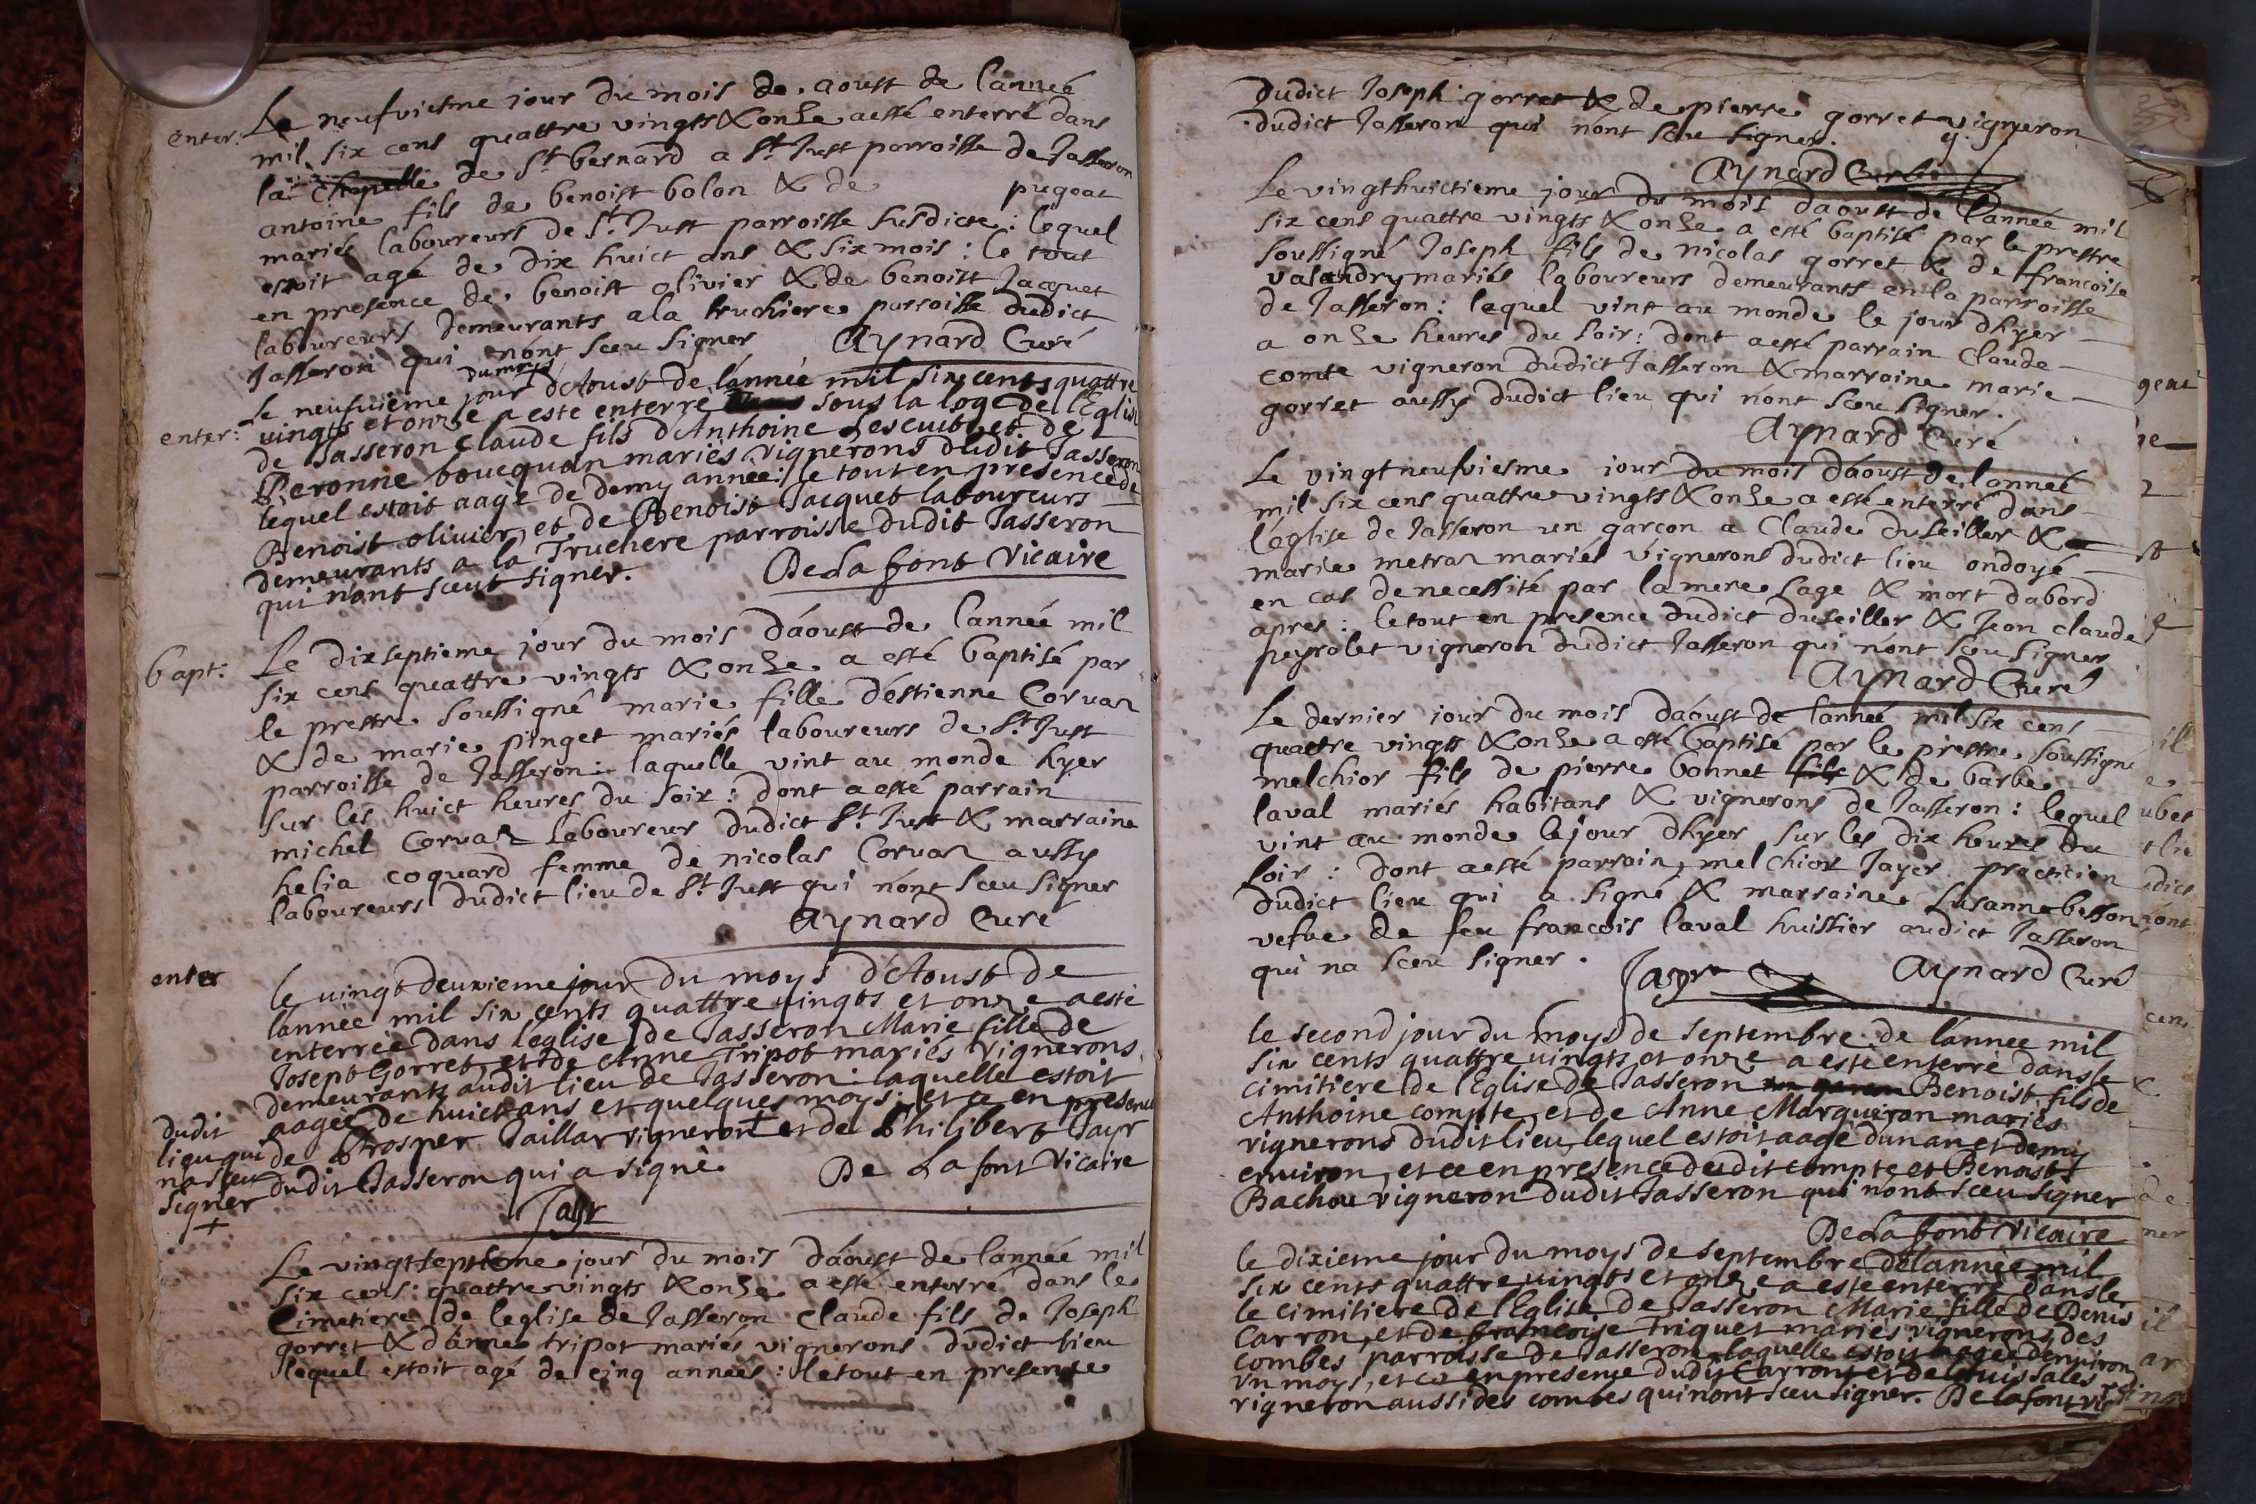 enter:
Le neufviesme jour du mois de aoust de lánneé
mil six cens quattre vingts & onze a esté enterré dans
la Chapelle de St bernard a St Just parroisse de Jasseron
antoine fils de benoist bolon & de pugeat
mariés laboureurs de St Just parroisse susdicte : lequel
estoit agé de dix huict ans & six mois : le tout
en presence de benoist olivier & de benoist Jacquet
laboureurs demeurants a la truchiere parroisse dudict
Jasseron qui nónt sceu signer Aynard Curé
enter:
Le neufuième jour du moys dAoust de lánneé mil six cents quattre
vingts et onze a este enterre sous la loge de lEglise
de Jasseron Claude fils dAnthoine Lescuit et de
Peronne boucquan mariés vignerons dudit Jasseron
lequel estoit aagè de demy anneè : le tout en presence de
Benoist olivier, et de Benoist Jacquet laboureurs
demeurants a la Truchere parroisse dudit Jasseron
qui nónt sceut signer. De La font Vicaire
bapt:
Le dixseptieme jour du mois dáoust de lánneé mil
six cens quattre vingts & onze a esté baptisé par
le prestre soussigné marie fille déstienne Corvaz
& de marie pinget mariés laboureurs de St Just
parroisse de Jasseron : laquelle vint au monde hyer
sur les huict heures du soir : dont a esté parrain
michel Corvaz laboureur dudict St Just & marraine
helia coquard femme de nicolas Corvaz aussy
laboureurs dudict lieu de St Just qui nónt sceu signer
Aynard Curé
enter
le uingt deuxieme jour du moys dAoust de
lánneè mil six cents quattre uingts et onze a esté
enterreè dans léglise de Jasseron Marie fille de
Joseph Gorret, et de Anne Tripot mariés vignerons
demeurants audit lieu de Jasseron : laquelle estoit
aageè de huict ans et quelques moys : et ce en presence
de Prosper Taillar vigneron + et de Philibert Jayr
dudit Jasseron qui a signè. De La font Vicaire
dudit
lieu qui
na sceu
signer
+
Jayr
Le vingtseptieme jour du mois dáoust de lánneé mil
six cens quattre vingts & onze a esté enterré dans le
Cimetiere de leglise de Jasseron Claude fils de Joseph
gorret & dánne tripot mariés vignerons dudict lieu
lequel estoit agé de cinq anneés : le tout en presence
dudict Joseph gorret & de pierre gorret vigneron
dudict Jasseron qui nónt sceu signer.
Aynard Curé
Le vingthuictieme jour du mois dáoust de lánneé mil
six cens quattre vingts & onze a esté baptisé par le prestre
soussigné Joseph fils de nicolas gorret & de francoise
valandry mariés laboureurs demeurants en la parroisse
de Jasseron : lequel vint au monde le jour dhyer
a onze heures du soir : dont a esté parrain Claude
comte vigneron dudict Jasseron & marraine marie
gorret aussy dudict lieu qui nónt sceu signer.
Aynard Curé
Le vingt neufviesme jour du mois dáoust de lánneé
mil six cens quattre vingts & onze a esté enterré dans
léglise de Jasseron un garcon a Claude duseiller &
marie metraz mariés vignerons dudict lieu ondoyé
en cas de necessité par la mere sage & mort dabord
apres : le tout en presence dudict duseiller & Jean claude
peyrolet vigneron dudict Jasseron qui nónt sceu signer
Aynard Curé
Le dernier jour du mois dáoust de lánneé mil six cens
quattre vingts & onze a esté baptisé par le prestre soussigné
melchior fils de pierre bonnet fils & de barbe
laval mariés habitans & vignerons de Jasseron : lequel
vint au monde le jour dhyer sur les dix heures du
soir : dont a esté parrain melchior Jayer practicien
dudict lieu qui a signé & marraine susanne besson
vefve de feu francois laval huissier audict Jasseron
qui na sceu signer.
Jayr Aynard Curé
le second jour du moys de septembre de lánnee mil
six cents quattre uingts et onze a esté enterrè dans le
cimitiere de lEglise de Jasseron Benoist, fils de
Anthoine compte, et de Anne Marguéron mariés
vignerons dudit lieu, lequel estoit aagè dun an et demy
environ, et ce en presence du dit compte et Benoist
Bachou vigneron dudit Jasseron qui nónt sceu signer
De La font Vicaire
le dixieme jour du moys de septembre de lánneè mil
six cents quattre uingts et onze a este enterrè dans le
le cimitiere de lEglise de Jasseron Marie fille de Denis
Carron, et de francoise Triquet mariés vignerons des
combes parroisse de Jasseron, laquelle estoit aageè denuiron
vn moys, et ce en presence dudit Carron et de Louis sales
vigneron aussi des combes qui nont sceu signer. De la font vic